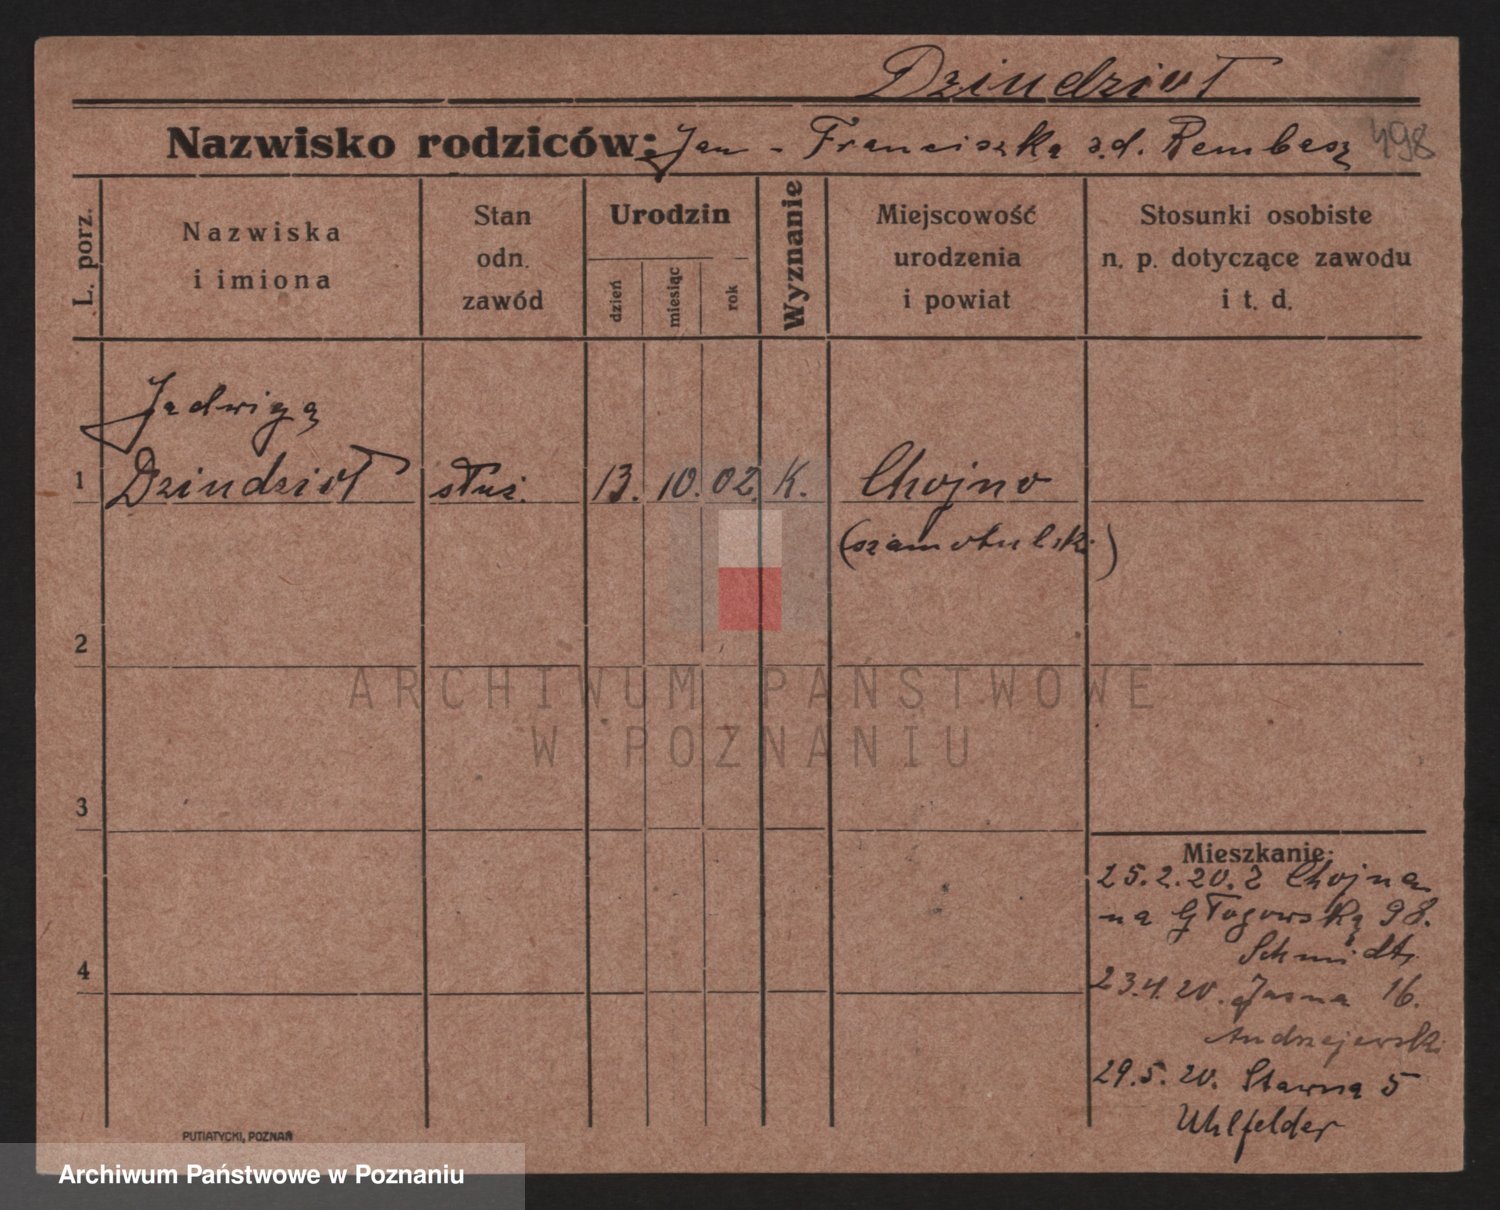 Dziudzioł
Nazwisko rodziców: Jan - Franciszka z.d. Rembasz 498
L. porz.
Nazwiska
i imiona
Stan
odn.
zawód
Urodzin
dzień
miesiąc
rok
Wyznanie
Miejscowość
urodzenia
i powiat
Stosunki osobiste
n. p. dotyczące zawodu
i t. d.
Jadwiga
1 Dziudzioł służ. 13. 10. 02. K. Chojno
(szamotulski)
2
ARCHIWUM PAŃSTWOWE
W POZNANIU
3
Mieszkanie:
25.2.20. z Chojna
na Głogowską 98.
Schmidt
4
23.4.20. Jasna 16.
Andrzejewski
29.5.20. Stawna 5
Uhlfelder
PUTIATYCKI, POZNAŃ
Archiwum Państwowe w Poznaniu